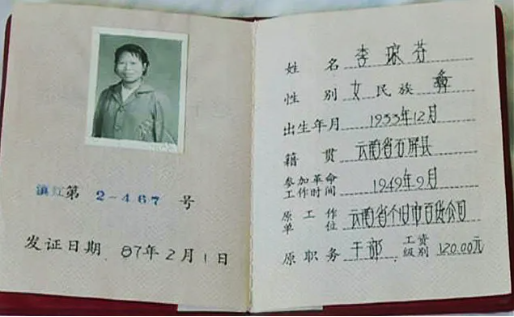 滇红第 2-467 号
发证日期 87年2月1日
姓名 李琼芬
性别 女 民族 彝
出生年月 1933年12月
籍贯 云南省石屏县
参加革命工作时间 1949年9月
原工作单位 云南省个旧市百货公司
原职务 干部 工资级别 120.00元